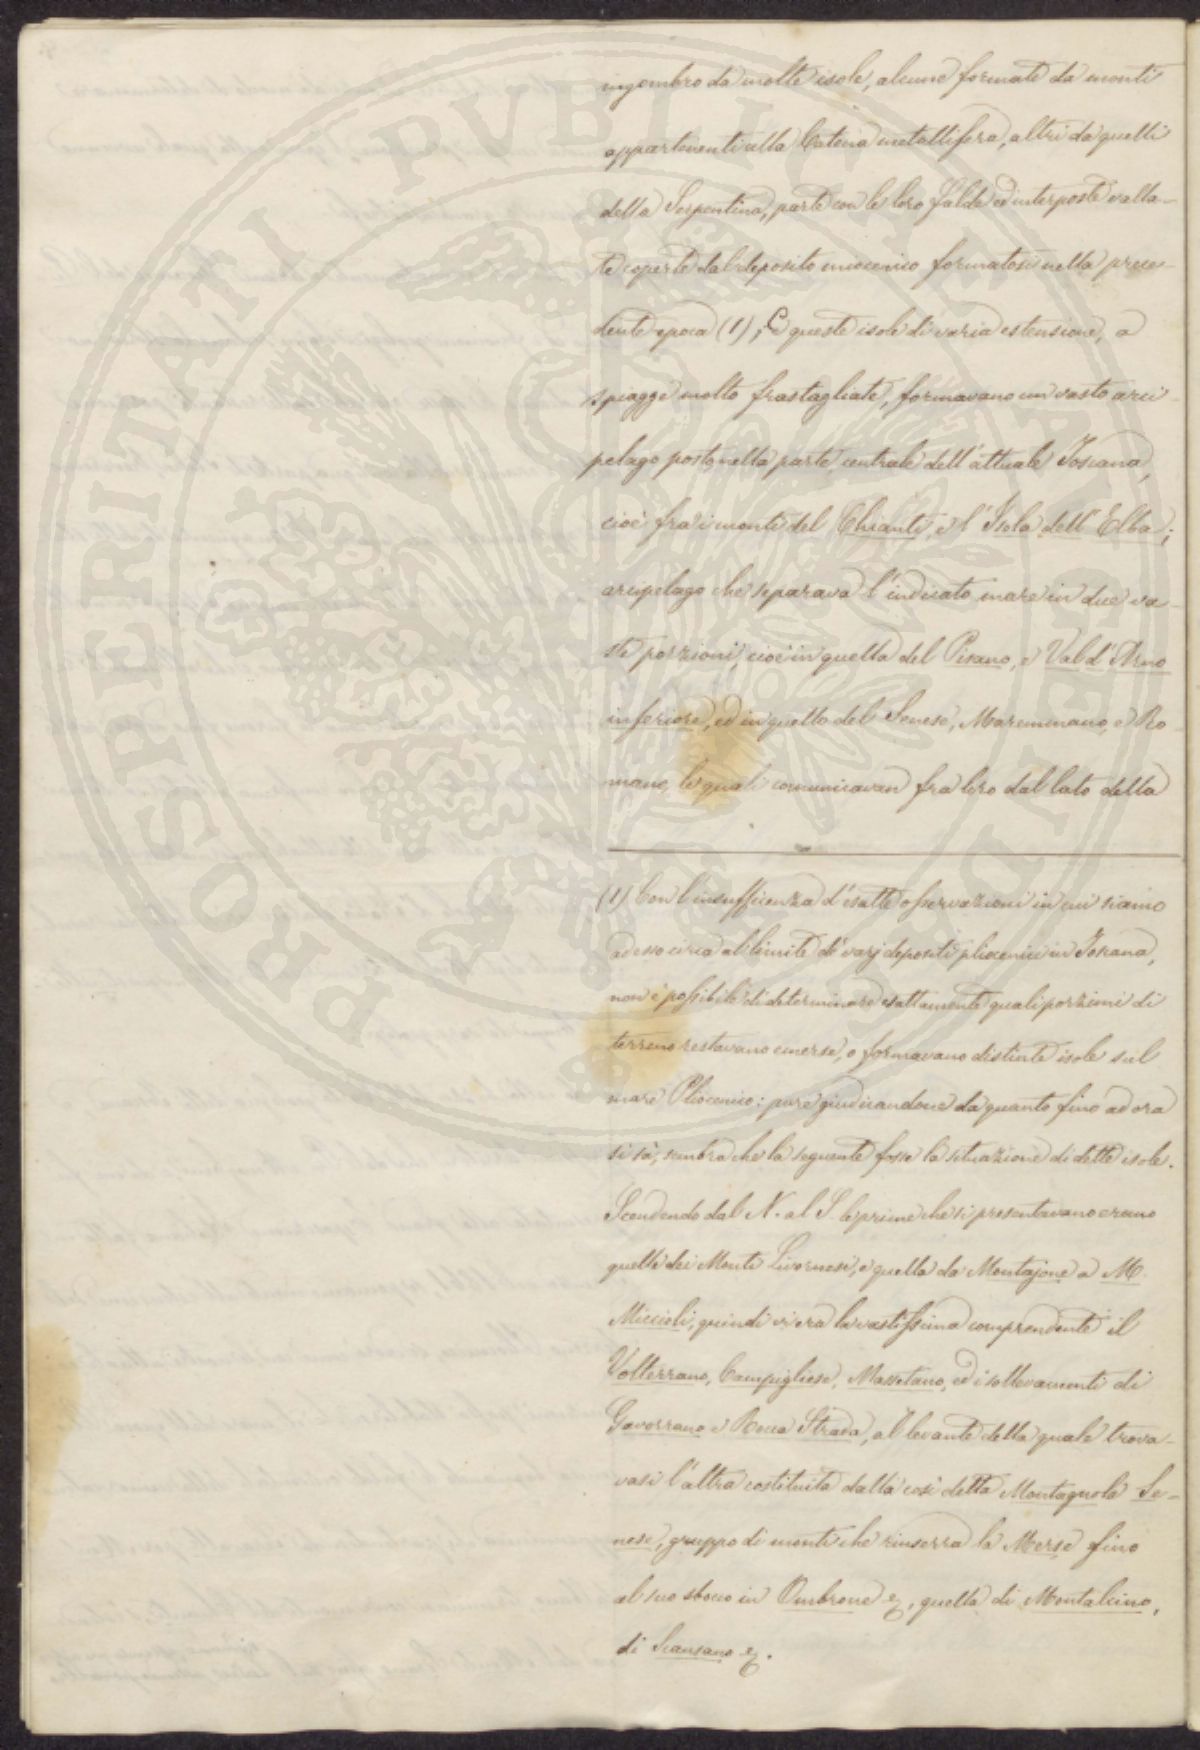 ingombro da molte isole, alcune formate da monti
appartenenti alla Catena metallifera, altri da quelli
della Serpentina, parte con le loro falde ed interposte valla-
te coperte dal deposito miocenico formatosi nella prece-
dente epoca (1); e queste isole di varia estensione, a
spiagge molto frastagliate, formavano un vasto arci-
pelago posto nella parte centrale dell'attuale Toscana,
cioè fra i monti del Chianti, e l'Isola dell'Elba;
arcipelago che separava l'indicato mare in due va-
ste porzioni, cioè in quella del Pisano, e Val d'Arno
inferiore, ed in quello del Senese, Maremmano, e Ro-
mano, le quali comunicavan fra loro dal lato della
(1) Con l'insufficienza d'esatte osservazioni in cui siamo
adesso circa al limite de' varj depositi pliocenici in Toscana,
non è possibile di determinare esattamente quali porzioni di
terreno restavano emerse, o formavano distinte isole sul
mare Pliocenico: pure giudicandone da quanto fino ad ora
si sà, sembra che la seguente fosse la situazione di dette isole.
Scendendo dal N. al S. le prime che si presentavano erano
quelle dei Monti Livornesi, e quella da Montajone a M.
Miccioli, quindi vi era la vastissima comprendente il
Volterrano, Campigliese, Massetano, ed i sollevamenti di
Gavorrano e Rocca Strada, al levante della quale trova-
vasi l'altra costituita dalla così detta Montagnola Se-
nese, gruppo di monti che rinserra la Merse fino
al suo sbocco in Ombrone &, quella di Montalcino,
di Scansano &.
PROSPERITATI PUBLICAE AUGENDAE